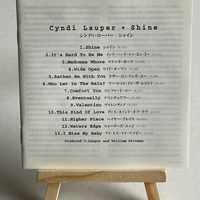 Cyndi Lauper • Shine
シンディ・ローパー シャイン
1.Shine シャイン
2.It's Hard To Be Me イッツ・ハード・トゥ・ビー・ミー
3.Madonna Whore マドンナ・ホーア
4.Wide Open ワイド・オープン
5.Rather Be With You ラザー・ビー・ウィズ・ユー
6.Who Let In The Rain フー・レット・イン・ザ・レイン
7.Comfort You コンフォート・ユー
8.Eventually イベンチュアリー
9.Valentino ヴァレンティノ
10.This Kind Of Love ディス・カインド・オブ・ラヴ
11.Higher Plane ハイヤー・プレイン
12.Waters Edge ウォーターズ・エッジ
13.I Miss My Baby アイ・ミス・マイ・ベイビー
Produced C.Lauper and William Wittman